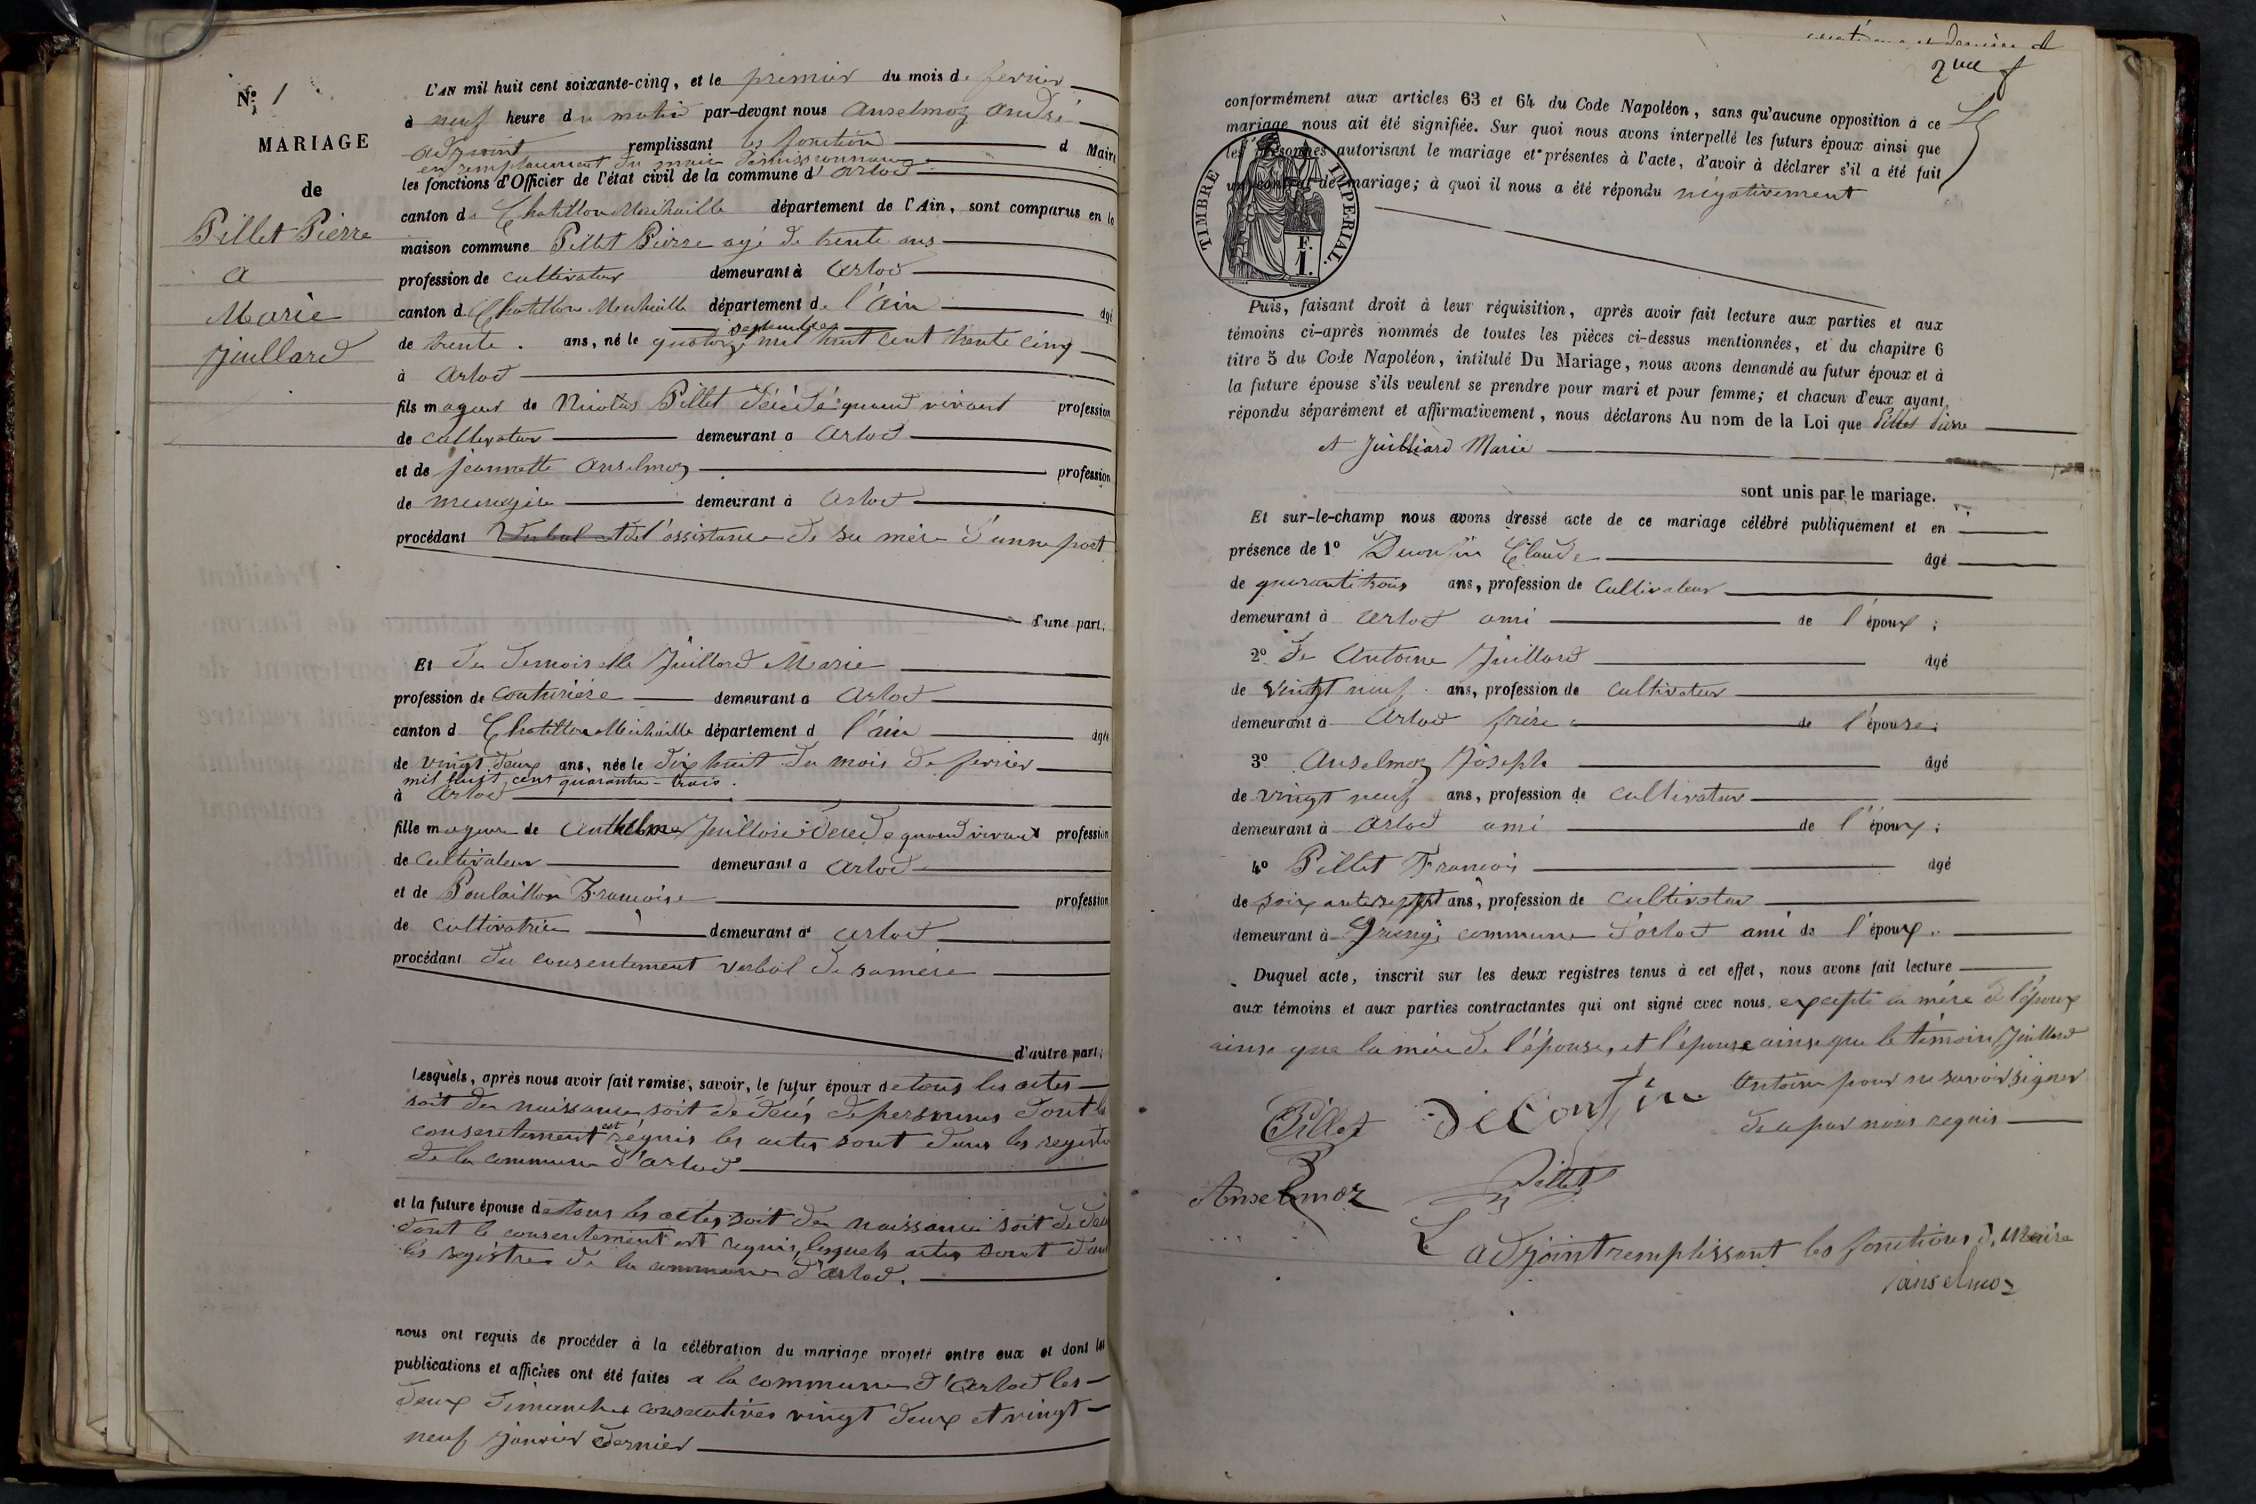 N° 1
MARIAGE
de
Pillet Pierre
a
Marie
Juillard
L'AN mil huit cent soixante-cinq, et le premier du mois de fevrier
à neuf heure du matin par-devant nous Anselmoz André
adjoint remplissant les fonction d Maire
en remplacement du maire demissionnaire
les fonctions d'Officier de l'état civil de la commune d' Arlod
canton de Chatillon Michaille département de l'Ain, sont comparus en la
maison commune Pillet Pierre agé de trente ans
profession de cultivateur demeurant à Arlod
canton d Chatillon Michaille département de l'ain âgé
septembre
de trente ans, né le quatorze mil huit cent trente cinq
à Arlod
fils mageur de Nicolas Pillet décédé quand vivant profession
de cultivateur demeurant a Arlod
et de Jeannette Anselmoz profession
de menagère demeurant à Arlod
procédant Verbal et de l'assistance de sa mère d'unne part
d'une part,
Et de demoiselle Juillard Marie
profession de couturière demeurant a Arlod
canton d Chatillon Michaille département d l'ain âgée
de vingt deux ans, née le dix huit du mois de fevrier
mil huit cent quarante-trois.
à Arlod
fille mageure de Anthelme Juillard décédé quand vivant profession
de cultivateur demeurant a Arlod
et de Poulaillon Francoise profession
de cultivatrice demeurant à Arlod
procédant du consentement verbal de sa mère
d'autre part;
Lesquels, après nous avoir fait remise, savoir, le futur époux de tous les actes
soit de naissance soit de décés de personnes dont le
consentement est réquis les actes sont dans les registre
de la commune d'arlod
et la future épouse de tous les actes soit de naissance soit de décés
dont le consentement est requis, lesquels actes sont dans
les registres de la commune d'arlod.
nous ont requis de procéder à la célébration du mariage projeté entre eux et dont les
publications et affiches ont été faites a la commune d'Arlod les
deux dimanches consecutives vingt deux et vingt
neuf janvier dernier
et dernière
2me f
conformément aux articles 63 et 64 du Code Napoléon, sans qu'aucune opposition à ce
mariage nous ait été signifiée. Sur quoi nous avons interpellé les futurs époux ainsi que
les personnes autorisant le mariage et présentes à l'acte, d'avoir à déclarer s'il a été fait
un contrat de mariage; à quoi il nous a été répondu négativement
TIMBRE IMPERIAL.
F.
1.
Puis, faisant droit à leur réquisition, après avoir fait lecture aux parties et aux
témoins ci-après nommés de toutes les pièces ci-dessus mentionnées, et du chapitre 6
titre 5 du Code Napoléon, intitulé Du Mariage, nous avons demandé au futur époux et à
la future épouse s'ils veulent se prendre pour mari et pour femme; et chacun d'eux ayant,
répondu séparément et affirmativement, nous déclarons Au nom de la Loi que Pillet Pierre
et Juilliard Marie
sont unis par le mariage.
Et sur-le-champ nous avons dressé acte de ce mariage célébré publiquement et en
présence de 1° Deconfin Claude âgé
de quarante trois ans, profession de Cultivateur
demeurant à Arlod ami de l'époux;
2° de Antoine Juillard âgé
de vingt neuf ans, profession de cultivateur
demeurant à Arlod frère de l'épouse;
3° Anselmoz Joseph âgé
de vingt neuf ans, profession de cultivateur
demeurant à Arlod ami de l'époux;
4° Pillet Francois âgé
de soixante sept ans, profession de cultivateur
demeurant à commune d'arlod ami de l'époux.
Duquel acte, inscrit sur les deux registres tenus à cet effet, nous avons fait lecture
aux témoins et aux parties contractantes qui ont signé avec nous, excepté la mére de l'époux
ainse que la mère de l'épouse, et l'épouse ainse que le témoin Juillard
Antoine pour ne savoir signer
de a par nous requis
Pillet deconfin
Anselmoz Pillet
L adjoint remplissant les fonctions de Maire
anselmoz